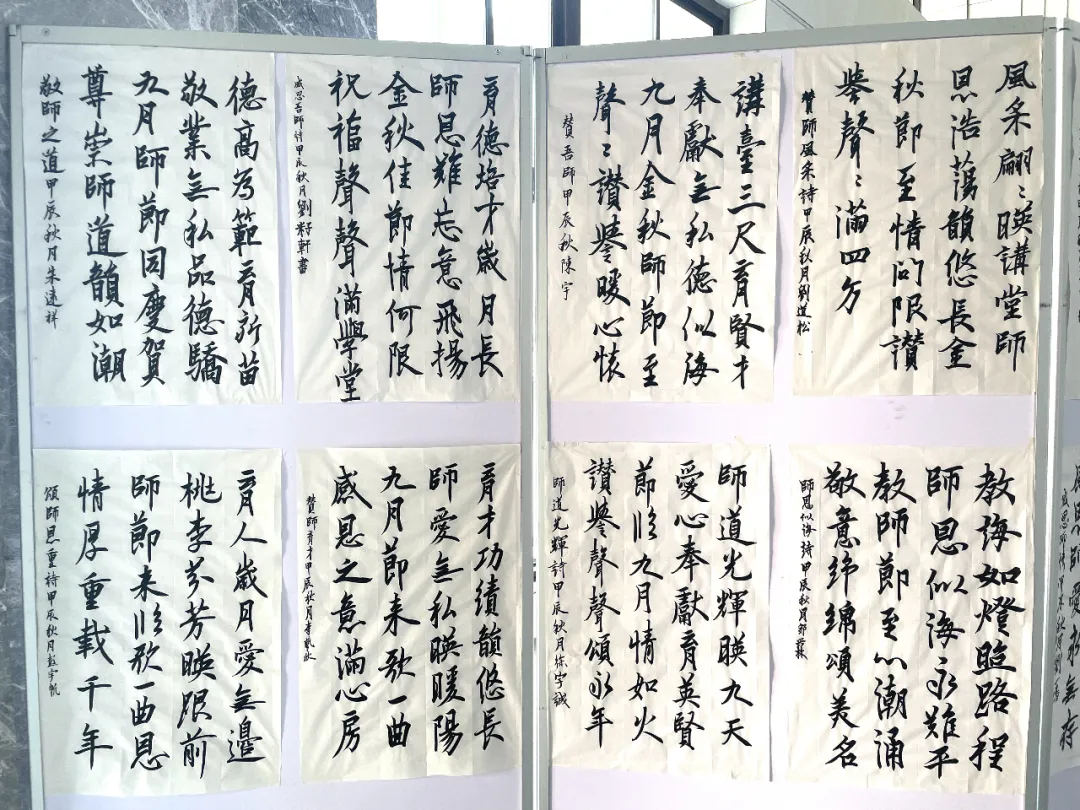 風采翩〻暎講堂師
恩浩蕩韻悠長金
秋節至情问限讚
譽聲〻滿四方
贊師風采詩甲辰秋月劉道松
講臺三尺育賢才
奉獻無私德似海
九月金秋師節至
聲〻讚譽暖心懷
贊吾師甲辰秋陳宇
育德培才歲月長
師恩難忘意飛揚
金秋佳節情何限
祝福聲聲滿學堂
感恩吾師詩甲辰秋月劉籽軒書
德高为範育新苗
敬業無私品德驕
九月師節同慶賀
尊崇師道韻如潮
敬師之道甲辰秋月朱逵祥
教誨如燈照路程
師恩似海永難平
教師節至心潮涌
敬意綿綿頌美名
師恩似海詩甲辰秋月鄒
師道光輝暎九天
愛心奉獻育英賢
節臨九月情如火
讚譽聲聲頌永年
師道光輝詩甲辰秋月徐宇誠
育才功績韻悠長
師愛無私暎暖陽
九月節来歌一曲
感恩之意滿心房
贊師育才甲辰秋月李
育人歲月愛無邊
桃李芬芳暎眼前
師節来臨歌一曲恩
情厚重載千年
頌師恩重詩甲辰秋月彭宇帆